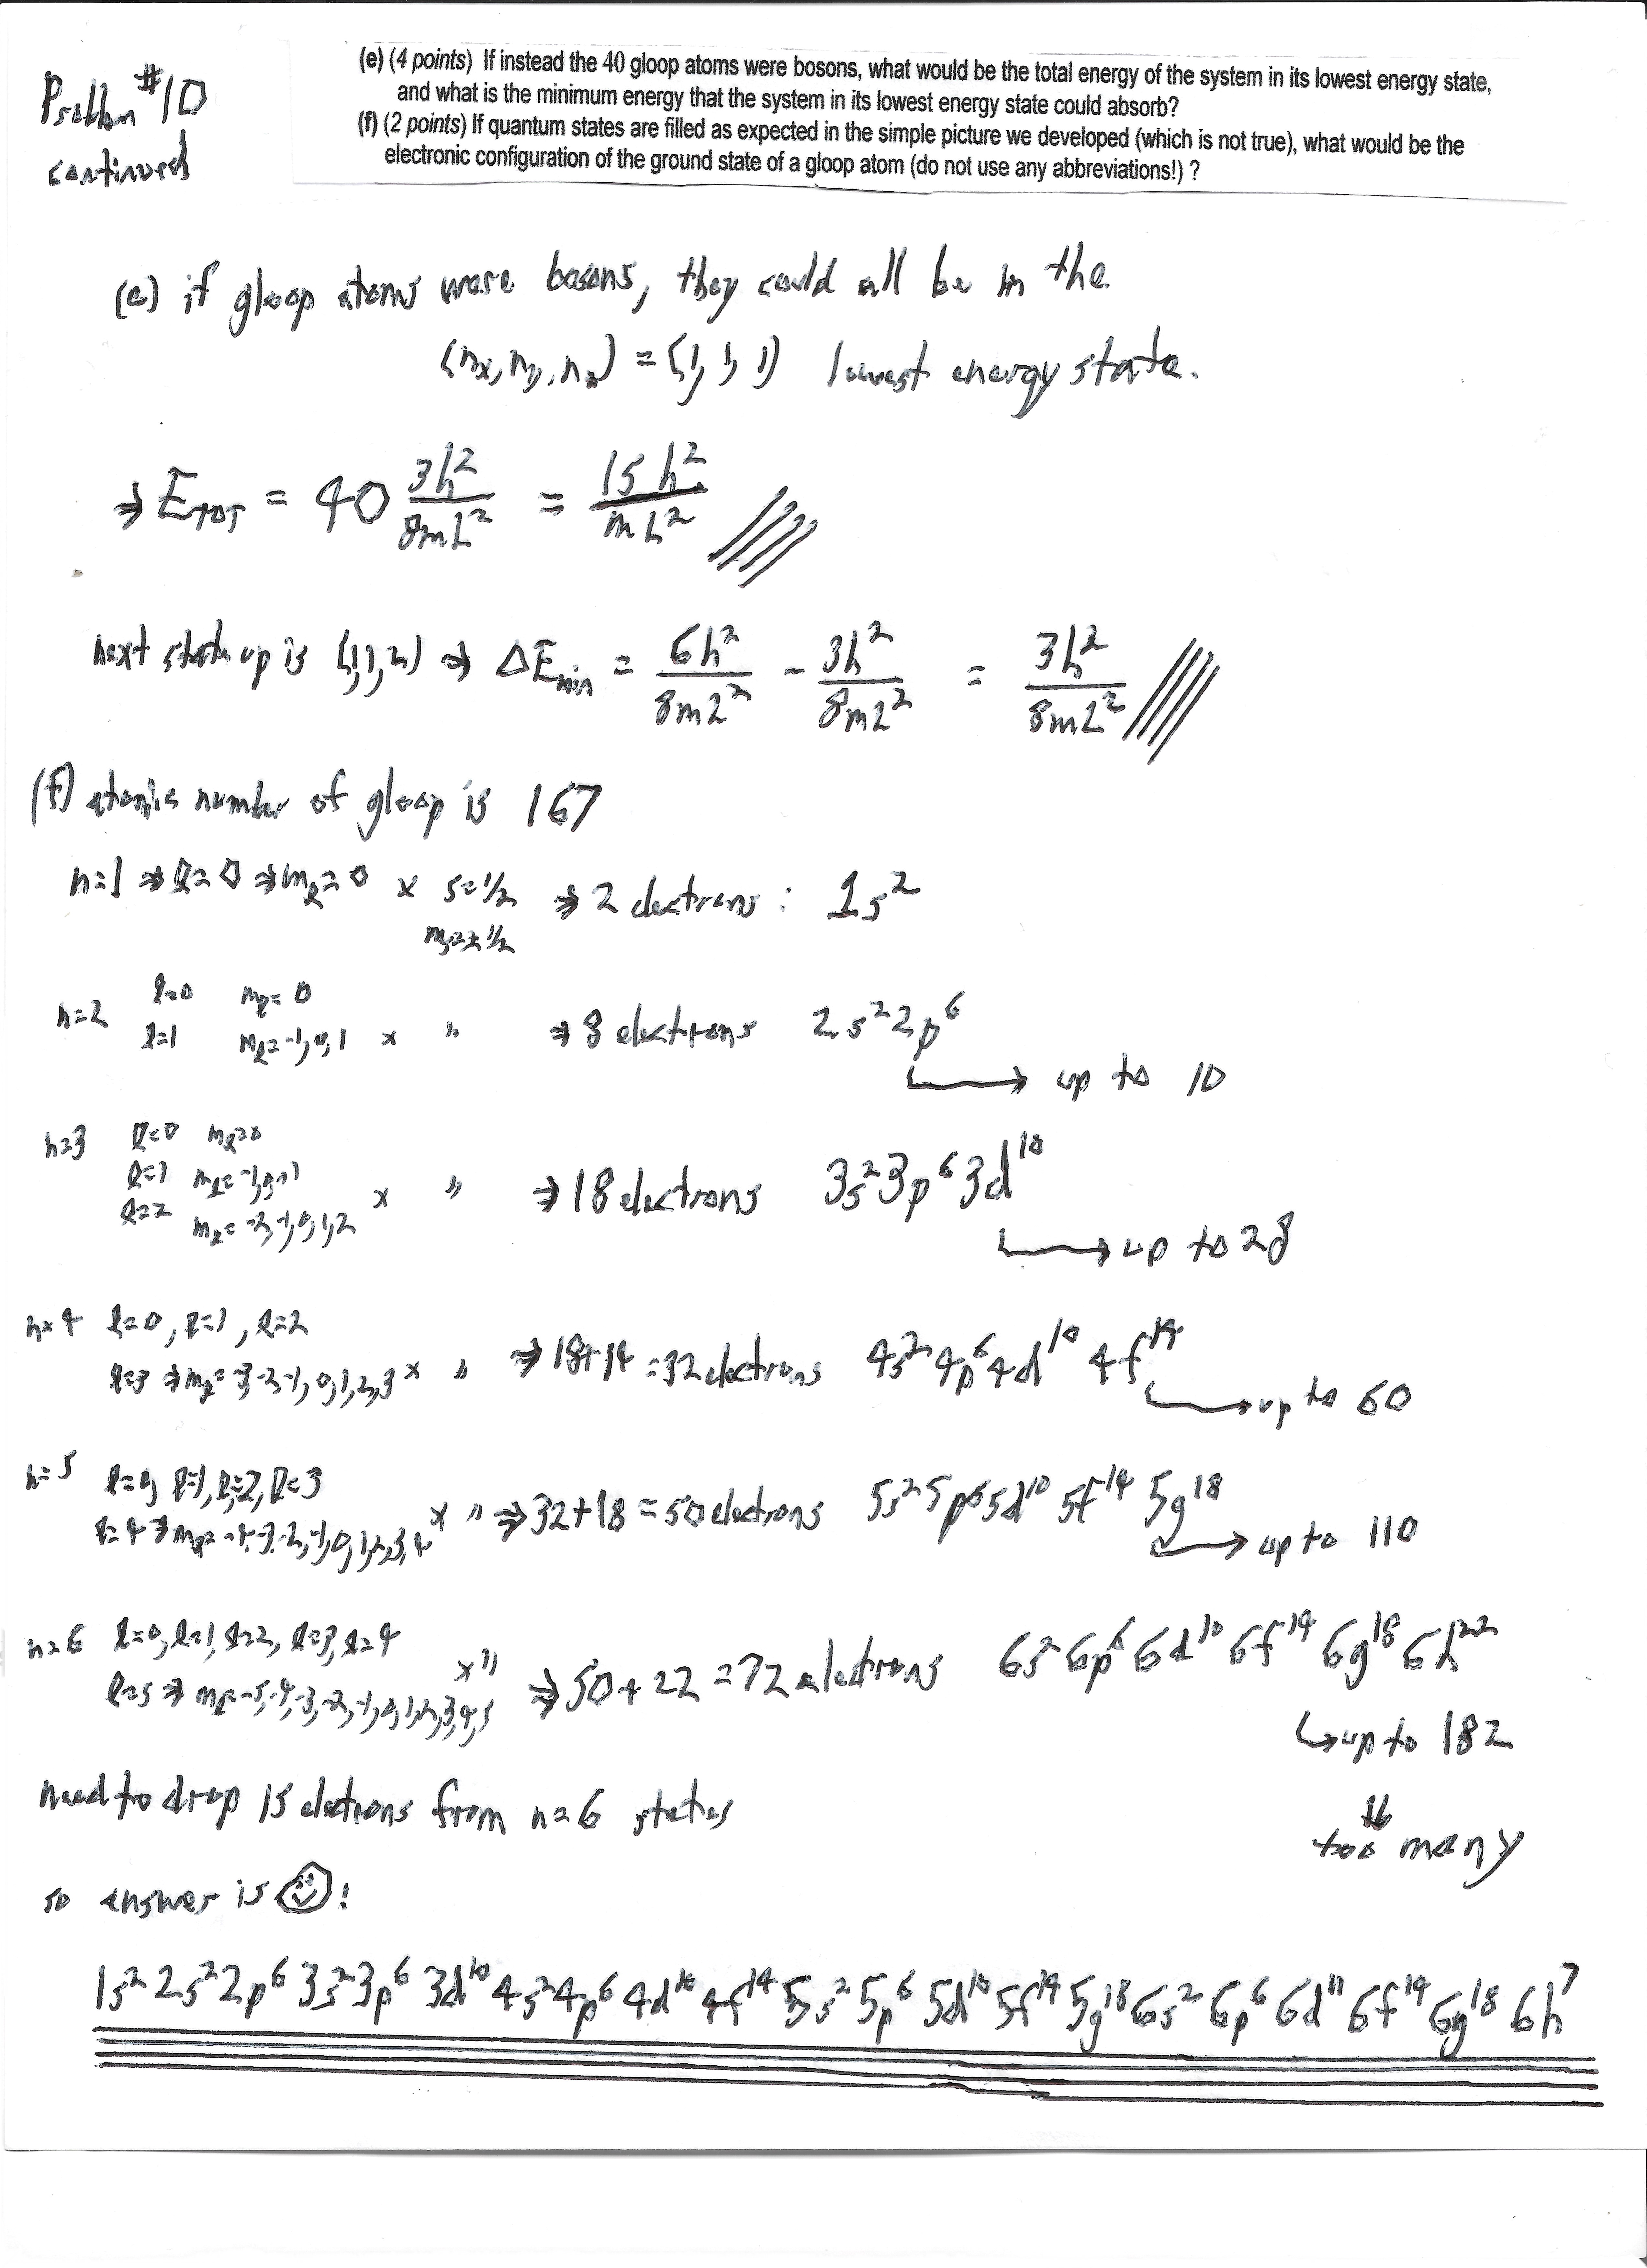 Problem #10
continued
(e) (4 points) If instead the 40 gloop atoms were bosons, what would be the total energy of the system in its lowest energy state,
and what is the minimum energy that the system in its lowest energy state could absorb?
(f) (2 points) If quantum states are filled as expected in the simple picture we developed (which is not true), what would be the
electronic configuration of the ground state of a gloop atom (do not use any abbreviations!) ?
(e) if gloop atoms were bosons, they could all be in the
(nx, ny, nz) = (1, 1, 1) lowest energy state.
⇒ E_TOT = 40 3h²/8mL² = 15h²/mL²
next state up is (1,1,2) ⇒ ΔE_min = 6h²/8mL² - 3h²/8mL² = 3h²/8mL²
(f) atomic number of gloop is 167
n=1 ⇒ l=0 ⇒ m_l=0 × s=1/2 ⇒ 2 electrons : 1s²
m_s=±1/2
n=2 l=0 m_l=0
l=1 m_l=-1,0,1 × " ⇒ 8 electrons 2s²2p⁶
up to 10
n=3 l=0 m_l=0
l=1 m_l=-1,0,1
l=2 m_l=-2,-1,0,1,2 × " ⇒ 18 electrons 3s²3p⁶3d¹⁰
up to 28
n=4 l=0, l=1, l=2
l=3 ⇒ m_l=-3,-2,-1,0,1,2,3 × " ⇒ 18+14=32 electrons 4s²4p⁶4d¹⁰4f¹⁴
up to 60
n=5 l=0, l=1, l=2, l=3
l=4 ⇒ m_l=-4,-3,-2,-1,0,1,2,3,4 × " ⇒ 32+18=50 electrons 5s²5p⁶5d¹⁰5f¹⁴5g¹⁸
up to 110
n=6 l=0, l=1, l=2, l=3, l=4
l=5 ⇒ m_l=-5,-4,-3,-2,-1,0,1,2,3,4,5 × " ⇒ 50+22=72 electrons 6s²6p⁶6d¹⁰6f¹⁴6g¹⁸6h²²
up to 182
⇓
too many
need to drop 15 electrons from n=6 states
so answer is ☺!
1s²2s²2p⁶3s²3p⁶3d¹⁰4s²4p⁶4d¹⁰4f¹⁴5s²5p⁶5d¹⁰5f¹⁴5g¹⁸6s²6p⁶6d¹¹6f¹⁴6g¹⁸6h⁷